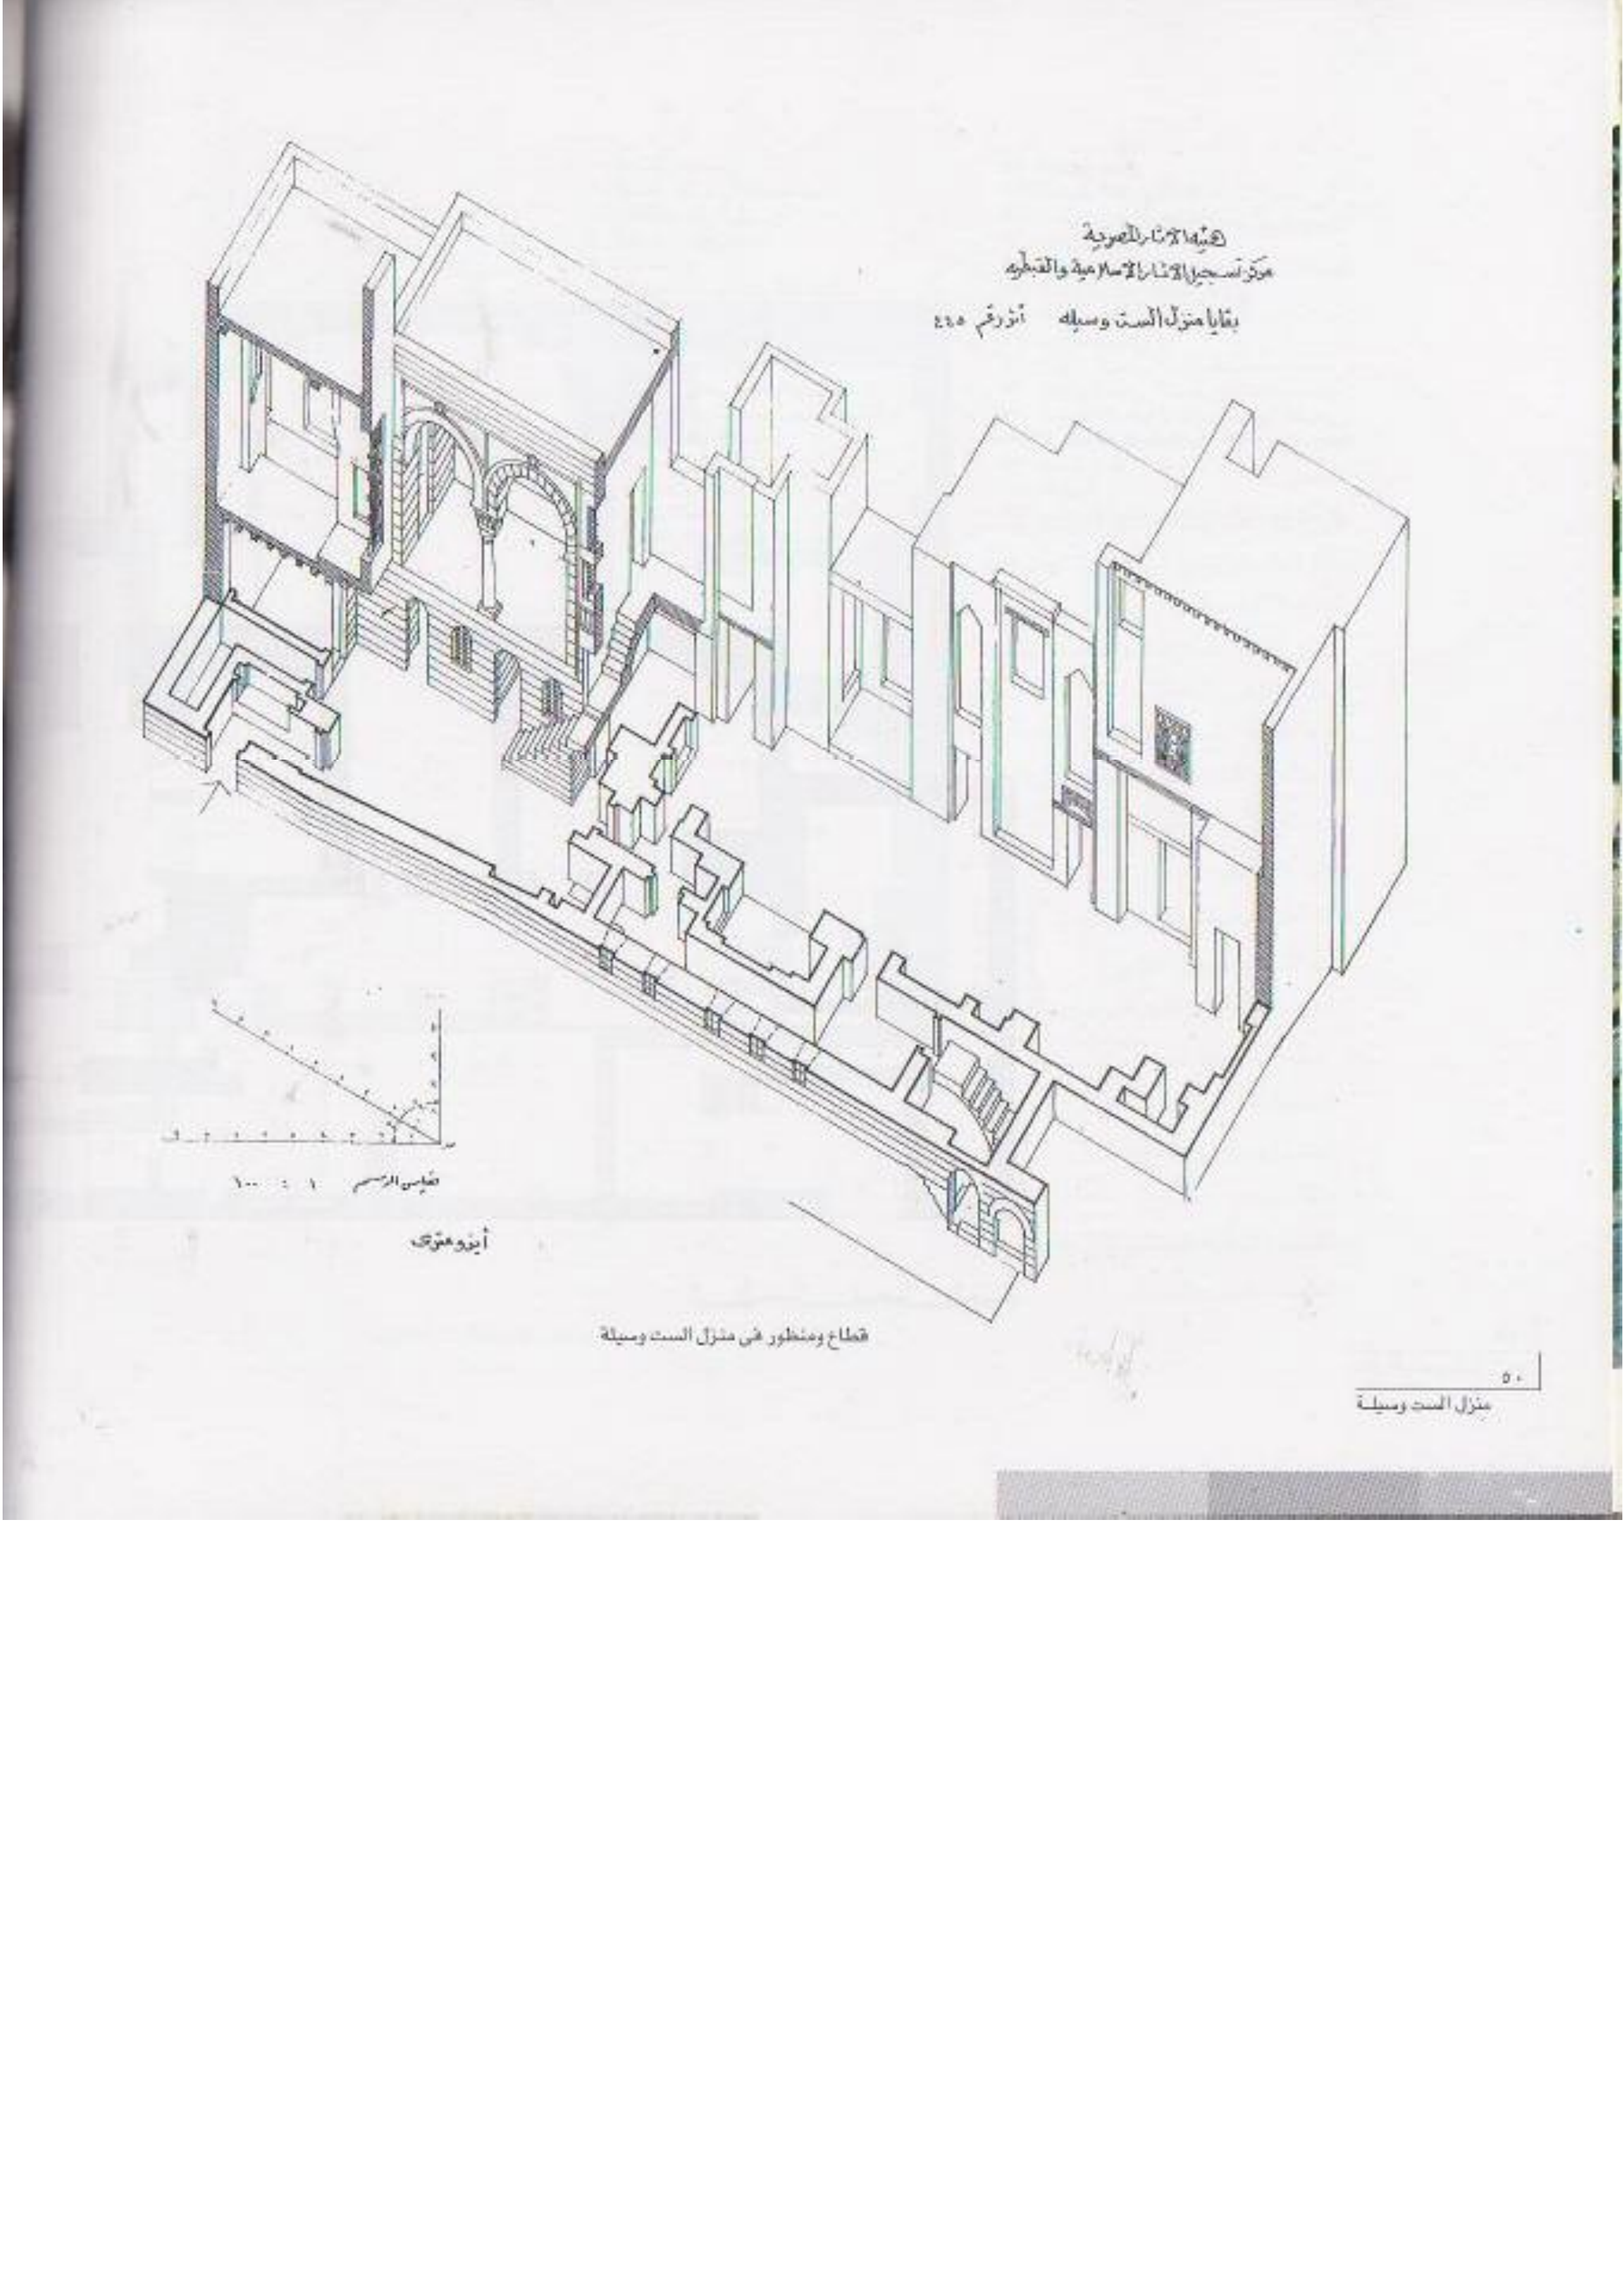 هيئة الاثار المصرية
مركز تسجيل الاثار الاسلامية والقبطيه
بقايا منزل الست وسيله أثر رقم ٤٤٥
مقياس الرسم ١ : ١٠٠
أيزومترى
قطاع ومنظور فى منزل الست وسيلة
٥٠
منزل الست وسيلـة